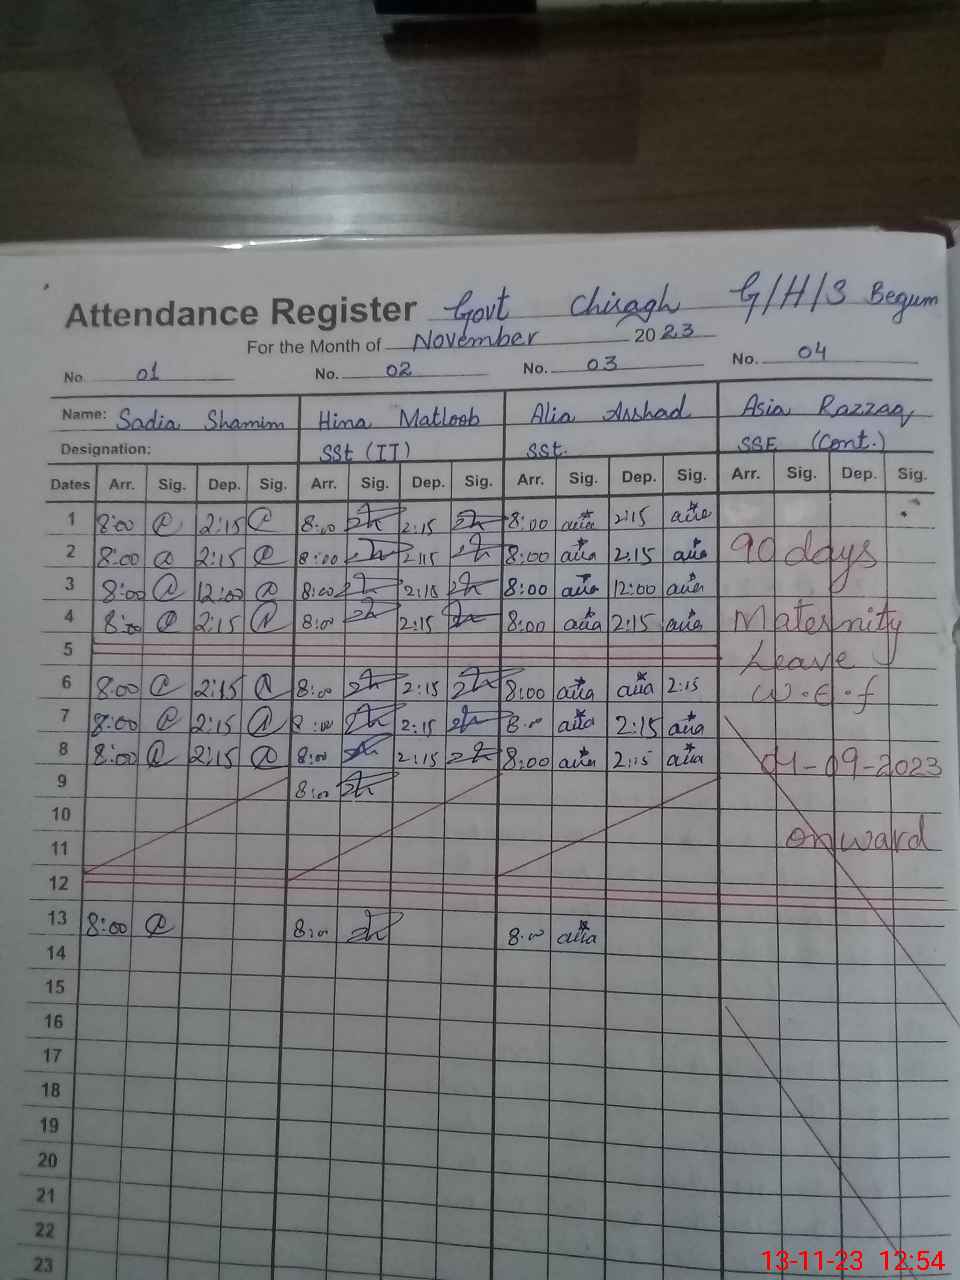 Attendance Register Govt Chiragh G/H/S Begum
For the Month of November 2023
No. 01 No. 02 No. 03 No. 04
Name: Sadia Shamim Hina Matloob Alia Arshad Asia Razzaq
Designation: SSt (IT) SSt. SSE (Cont.)
Dates Arr. Sig. Dep. Sig. Arr. Sig. Dep. Sig. Arr. Sig. Dep. Sig. Arr. Sig. Dep. Sig.
1 8:00 2:15 8:00 2:15 8:00 alia 2:15 alia
2 8:00 2:15 8:00 2:15 8:00 alia 2:15 alia 90 days
3 8:00 12:00 8:00 2:15 8:00 alia 12:00 alia
4 8:00 2:15 8:00 2:15 8:00 alia 2:15 alia Maternity
5 Leave
6 8:00 2:15 8:00 2:15 8:00 alia alia 2:15 W.E.f
7 8:00 2:15 8:00 2:15 8:00 alia 2:15 alia
8 8:00 2:15 8:00 2:15 8:00 alia 2:15 alia 04-09-2023
9 8:00
10 onward
11
12
13 8:00 8:00 8:00 alia
14
15
16
17
18
19
20
21
22
23
13-11-23 12:54